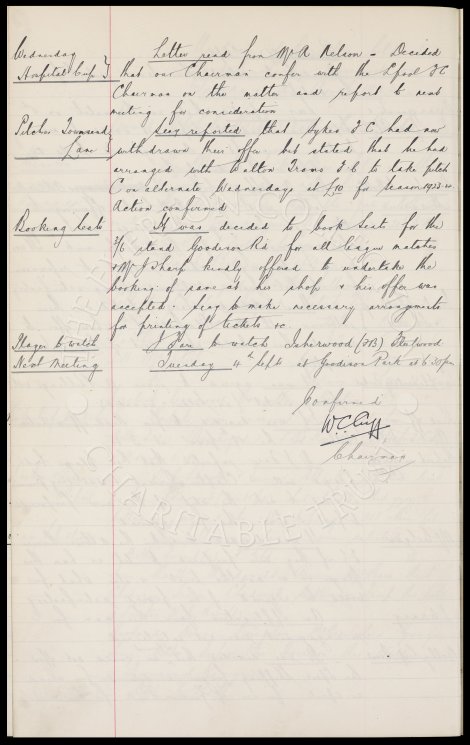 Wednesday Letter read from Mr A. Nelson - Decided
Hospital Cup } that our Chairman confer with the L'pool F C
Chairman on the matter and report to next
meeting for consideration
Pitches Townsend Secy reported that Sykes F C had now
Lane } withdrawn their offer but stated that he had
arranged with Walton Trams F C to take pitch
C on alternate Wednesdays at £10 for season 1923-4
Action confirmed
Booking Seats It was decided to book Seats for the
2/6 stand Goodison Rd for all league matches
& Mr J Sharp kindly offered to undertake the
booking of same at his shop & his offer was
accepted. Secy to make necessary arrangements
for printing of tickets &c.
Player to watch J Fare to watch Isherwood (FB) Fleetwood
Next Meeting Tuesday 4th Septr at Goodison Park at 6.30 pm
Confirmed
W.C. Cuff
Chairman
THE EVERTON COLLECTION
CHARITABLE TRUST